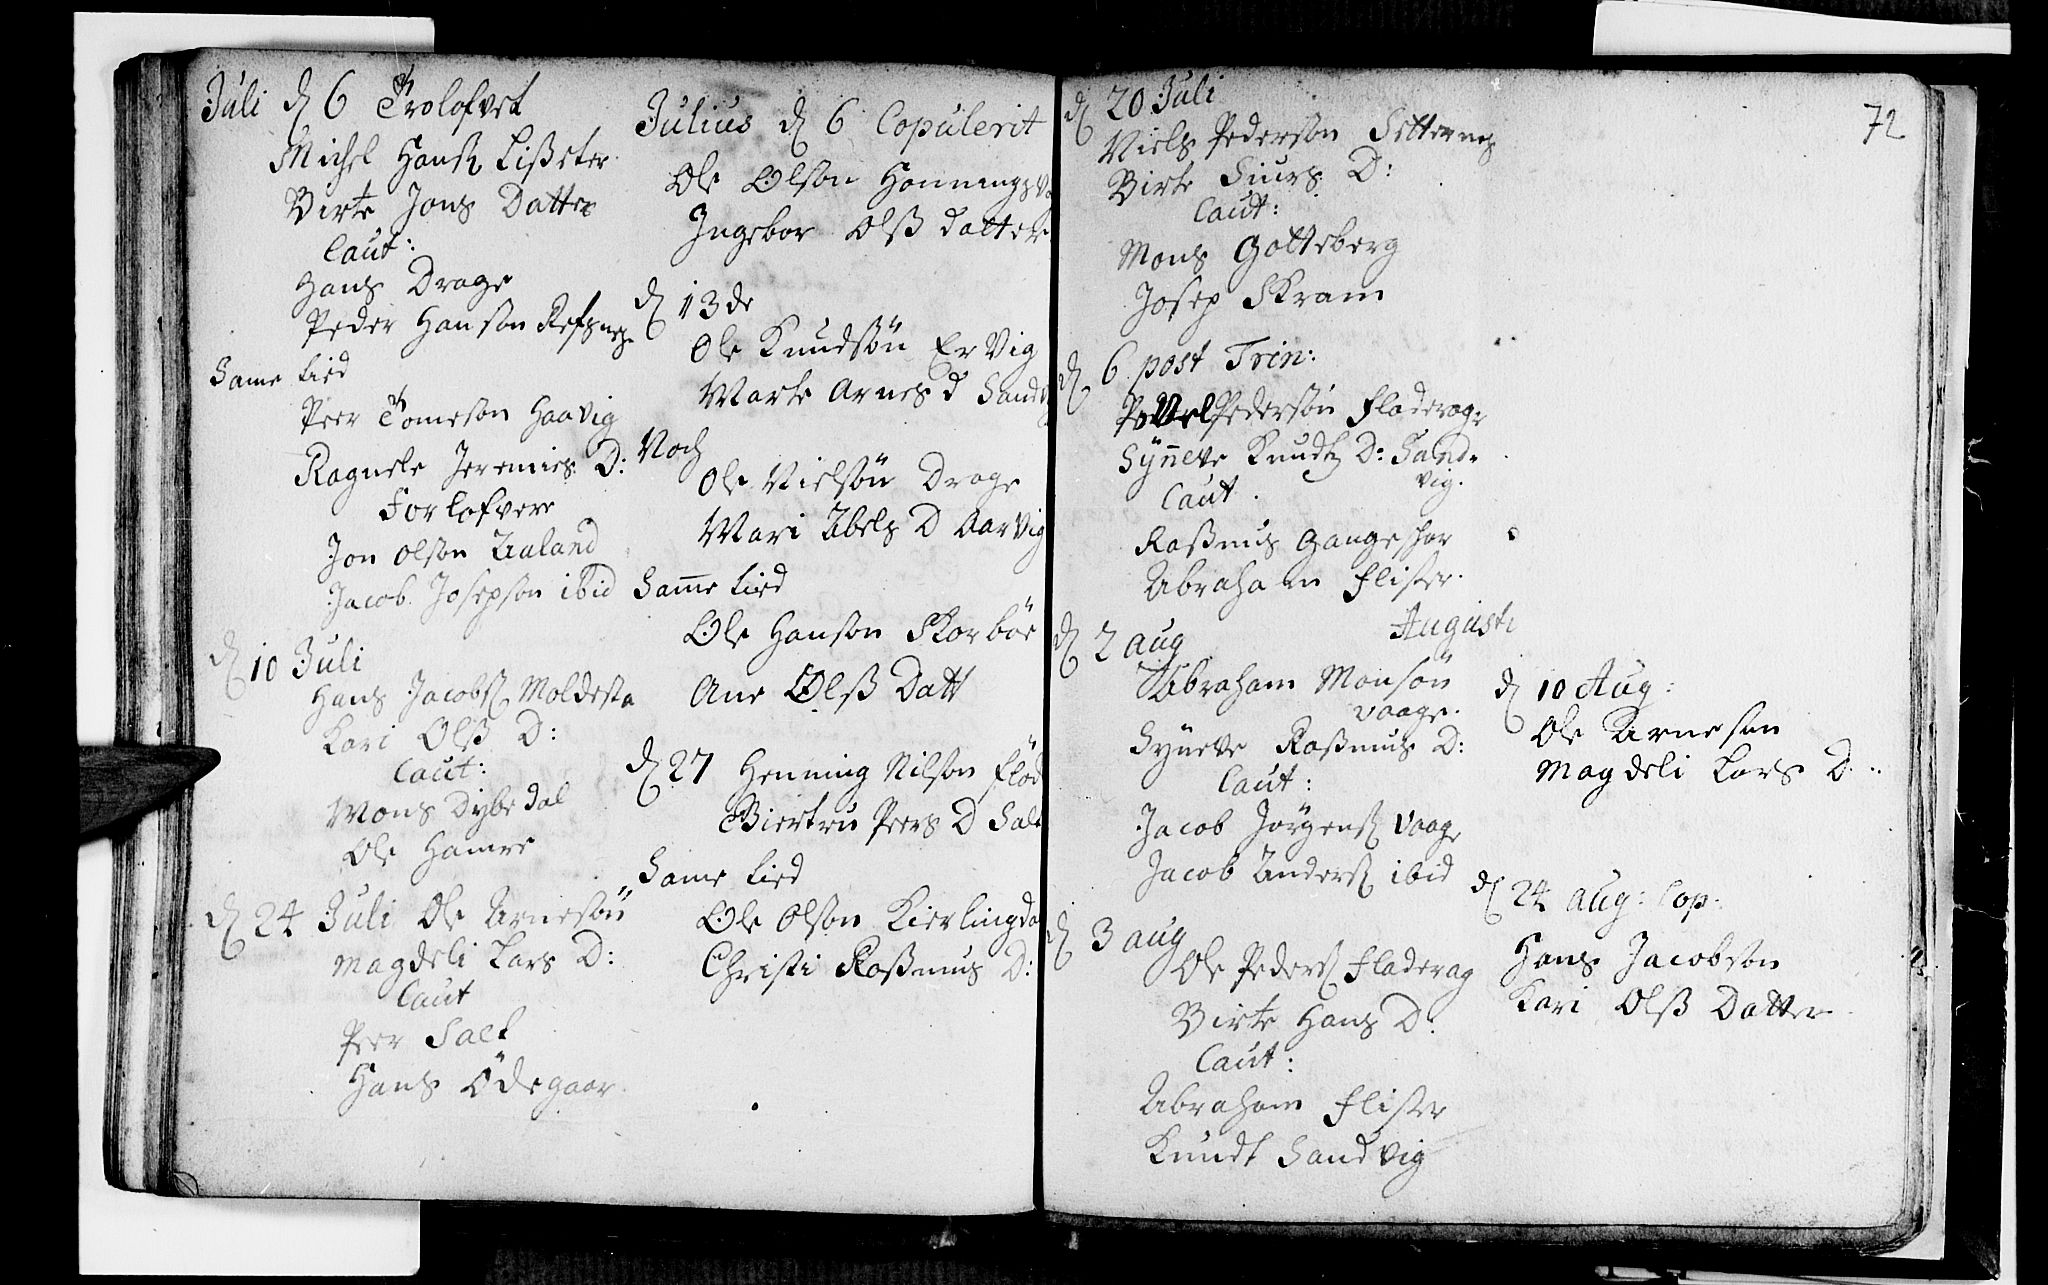 Juli d 6 Trolofvet
Michel Hans Lißeter
Birte Jons Datter
Caut:
Hans Drage
Peder Hanson Refsnes
Same tied
Peer Tomeson Haavig
Ragnele Jeremies D:
Forlofvere
Jon Olson Aaland
Jacob Josepson ibid
d 10 Juli
Hans Jacobs Moldesta
Kari Olß D:
Caut:
Mons Dybedal
Ole Hamre
d 24 Juli Ole Arnesön
Magdeli Lars D:
Caut
Peer Salt
Hans Ödegaar
Julius d 6 Copulerit
Ole Olson Honningsv
Ingebor Olß datter
d 13de
Ole Knudsön ErVig
Marte Arnes d Sandv
Noch
Ole Nielsön Drage
Mari Abels D AarVig
Samme tied
Ole Hanson Skorböe
Ane Olß Datt
d 27 Henning Nilson Flöd
Giertru Peers D Salt
Same tied
Ole Olson Kierlingda
Christi Raßmus D:
72
d 20 Juli
Niels Pederson Setternes
Birte Siurs D:
Caut:
Mons Gotteberg
Josep Skram
d 6 post Trin:
Povel Pedersön Fladerag
Synneve Knudtz D: Sand-
vig.
Caut.
Raßmus Gangeshor
Abraham Flister.
Augusti
d 2 aug
Abraham Monsön
Vaage.
Syneve Raßmus D:
Caut:
Jacob Jörgens Vaage
Jacob Anders ibid
d 3 aug
Ole Peders Fladerag
Birte Hans D:
Caut:
Abraham Flister
Knudt Sandvig
d 10 Aug:
Ole Arneson
Magdeli Lars D:
d 24 aug: Cop.
Hans Jacobson
Kari Olß Datter